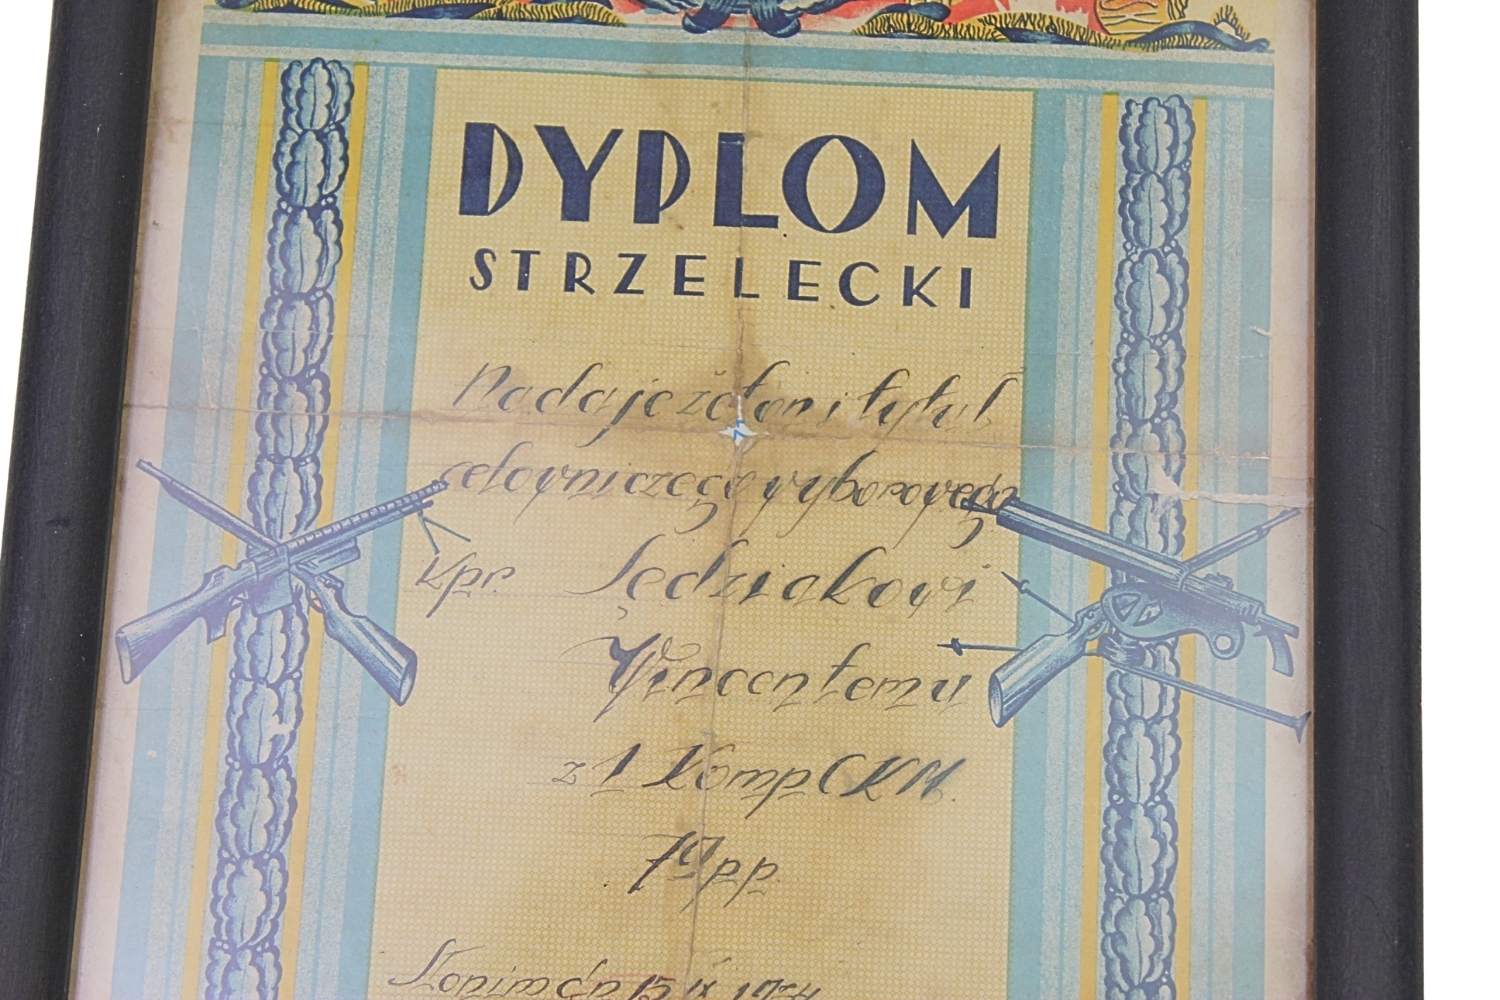 DYPLOM
STRZELECKI
Nadaję żeton i tytuł
celowniczego wyborowego
kpr. Sędziakowi
Wincentemu
z 1 Komp CKM.
79 pp.